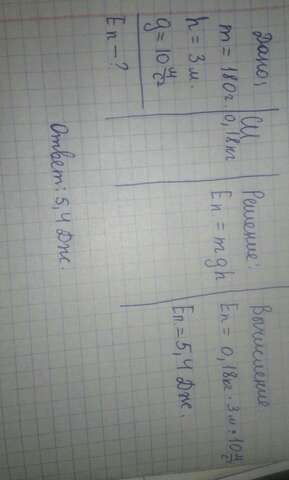 Дано:
m = 180г.
h = 3 м.
g = 10 м/с
Eп – ?
СИ
0,18кг
Решение:
Eп = mgh
Вычисление
Eп = 0,18кг · 3 м · 10 м/с
Eп = 5,4 Дж.
Ответ: 5,4 Дж.